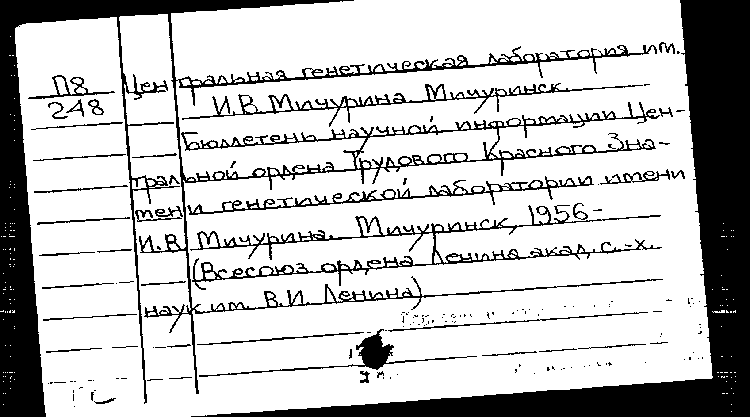 П8 Центральная генетическая лаборатория им.
248 И.В. Мичурина. Мичуринск.
Бюллетень научной информации Цен-
тральной ордена Трудового Красного Зна-
мени генетической лаборатории имени
И.В. Мичурина. Мичуринск, 1956-
(Всесоюз ордена Ленина акад. с.-х.
наук им. В.И. Ленина)